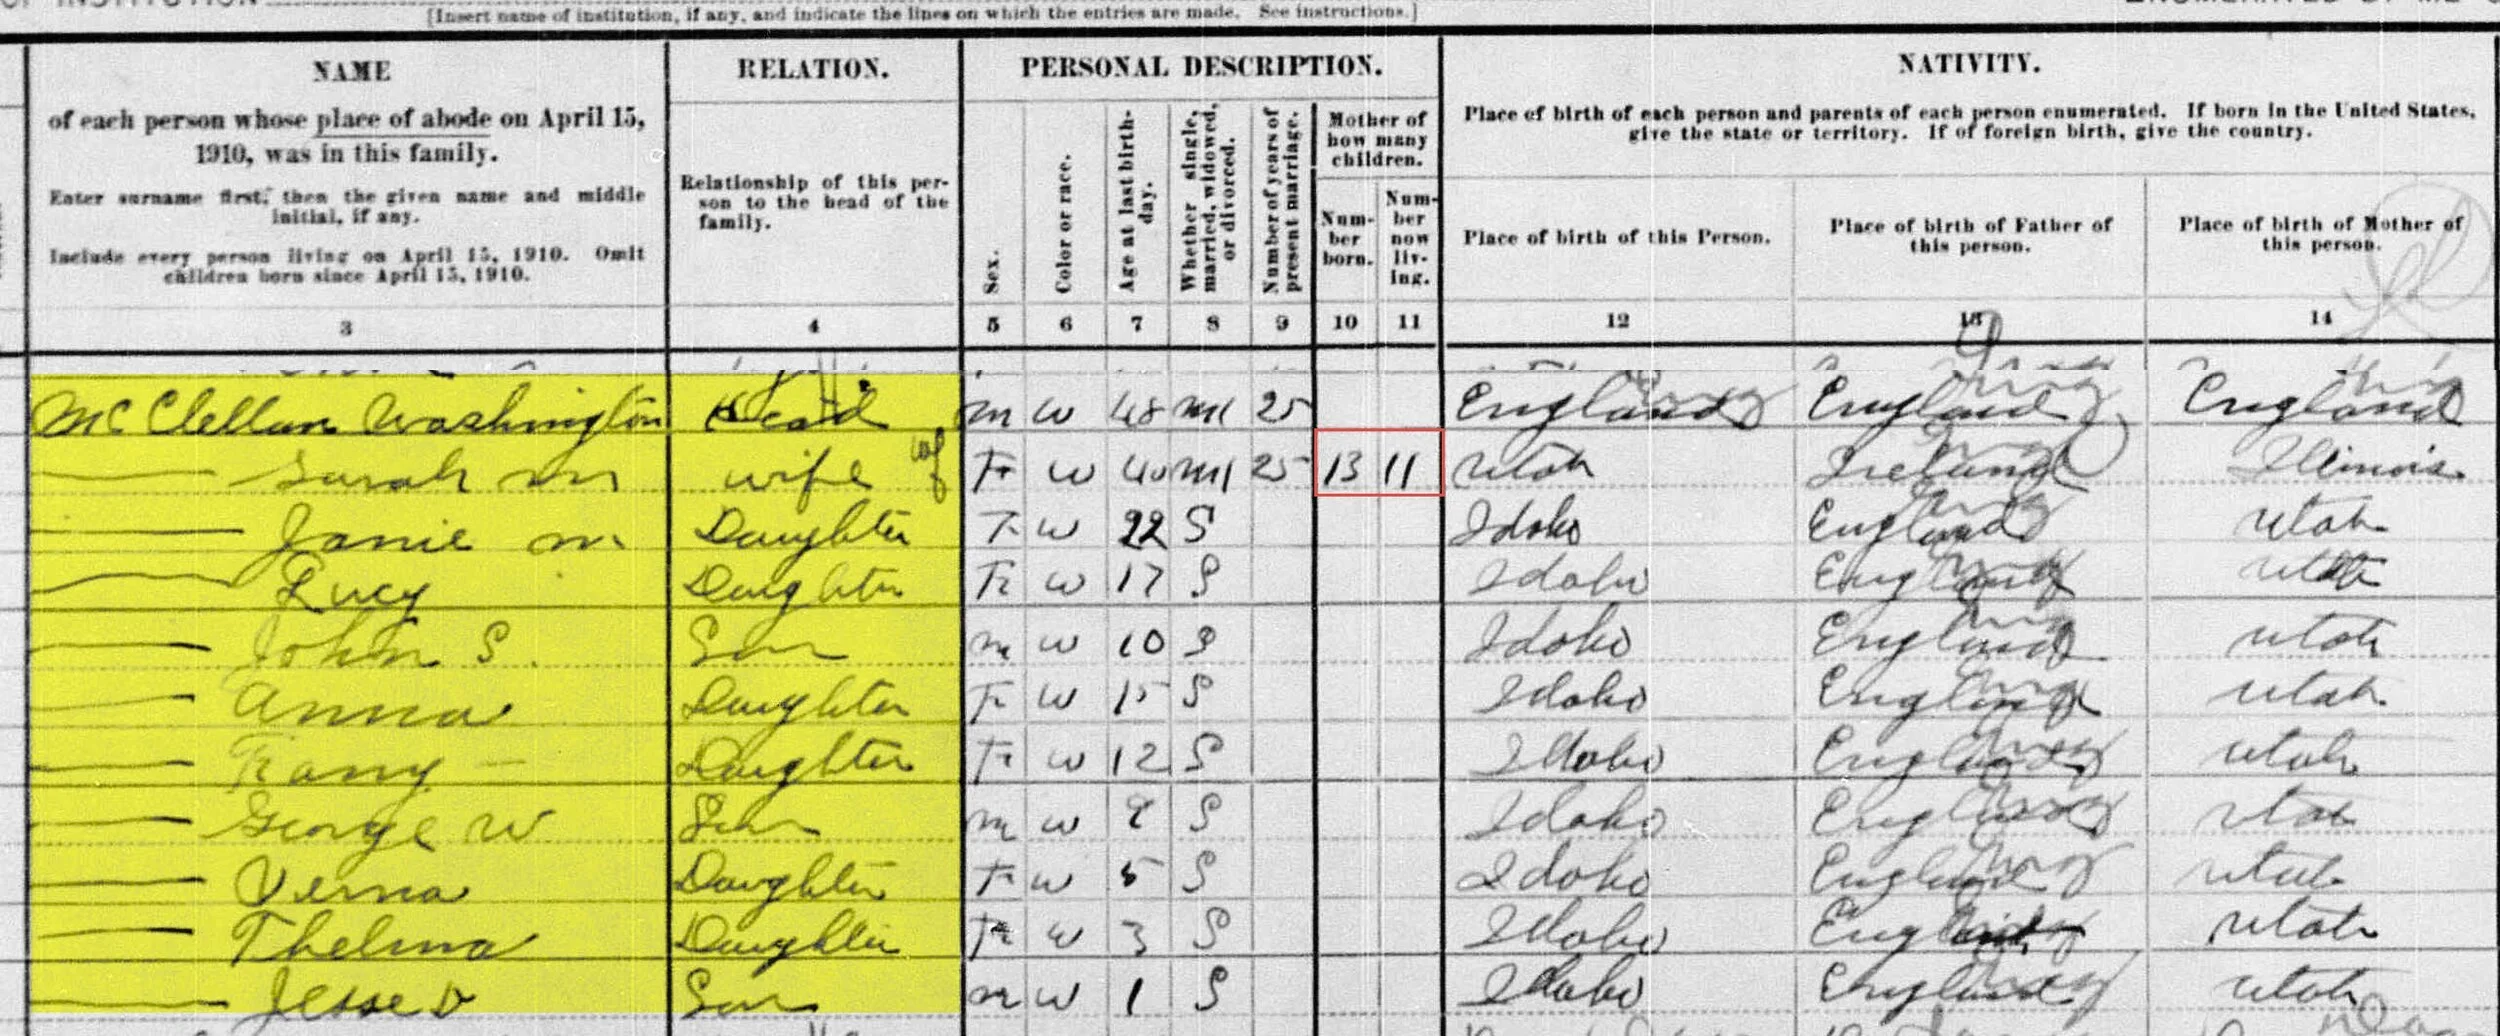 [Insert name of institution, if any, and indicate the lines on which the entries are made. See instructions.]
NAME
of each person whose place of abode on April 15,
1910, was in this family.
Enter surname first, then the given name and middle
initial, if any.
Include every person living on April 15, 1910. Omit
children born since April 15, 1910.
3
RELATION.
Relationship of this per-
son to the head of the
family.
4
PERSONAL DESCRIPTION.
Sex.
5
Color or race.
6
Age at last birth-
day.
7
Whether single,
married, widowed,
or divorced.
8
Number of years of
present marriage.
9
Mother of
how many
children.
Num-
ber
born.
10
Num-
ber
now
liv-
ing.
11
NATIVITY.
Place of birth of each person and parents of each person enumerated. If born in the United States,
give the state or territory. If of foreign birth, give the country.
Place of birth of this Person.
12
Place of birth of Father of
this person.
13
Place of birth of Mother of
this person.
14
McClellan Washington Head m w 48 M1 25 England England England
Sarah m wife F w 40 M1 25 13 11 Utah Ireland Illinois
Janie m Daughter F w 22 S Idaho England Utah
Lucy Daughter F w 17 S Idaho England Utah
John S. Son m w 10 S Idaho England Utah
Anna Daughter F w 15 S Idaho England Utah
Fanny Daughter F w 12 S Idaho England Utah
George W Son m w S Idaho England Utah
Verna Daughter F w 5 S Idaho England Utah
Thelma Daughter F w 3 S Idaho England Utah
Jesse D Son m w 1 S Idaho England Utah